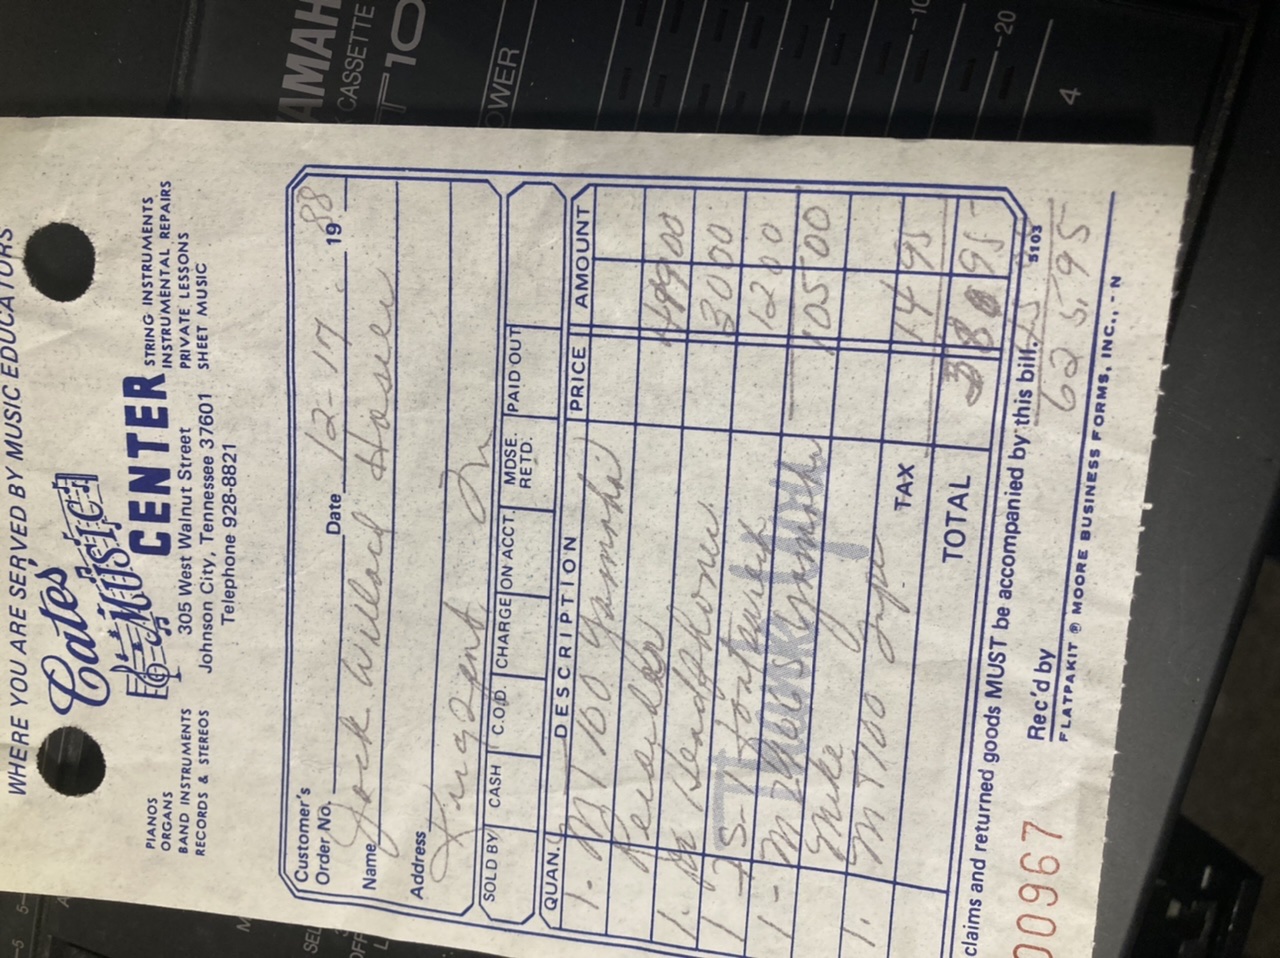 WHERE YOU ARE SERVED BY MUSIC EDUCATORS
Cates'
MUSIC
CENTER
PIANOS
ORGANS
BAND INSTRUMENTS
RECORDS & STEREOS
STRING INSTRUMENTS
INSTRUMENTAL REPAIRS
PRIVATE LESSONS
SHEET MUSIC
305 West Walnut Street
Johnson City, Tennessee 37601
Telephone 928-8821
Customer's
Order No. Date 12-17- 1988
Name Jack Willard
Address
SOLD BY CASH C.O.D. CHARGE ON ACCT. MDSE. RETD. PAID OUT
QUAN. DESCRIPTION PRICE AMOUNT
1- MT100 Yamaha
Recorder 489 00
1- Headphones 30 00
1- 12 00
1- M Yamaha 105 00
Mike
1. MT100 14 95
TAX
TOTAL
95
claims and returned goods MUST be accompanied by this bill.
5103
625.95
00967
Rec'd by
FLATPAKIT ® MOORE BUSINESS FORMS, INC., - N
Thank You
YAMAHA
CASSETTE
POWER
-10
-20
4